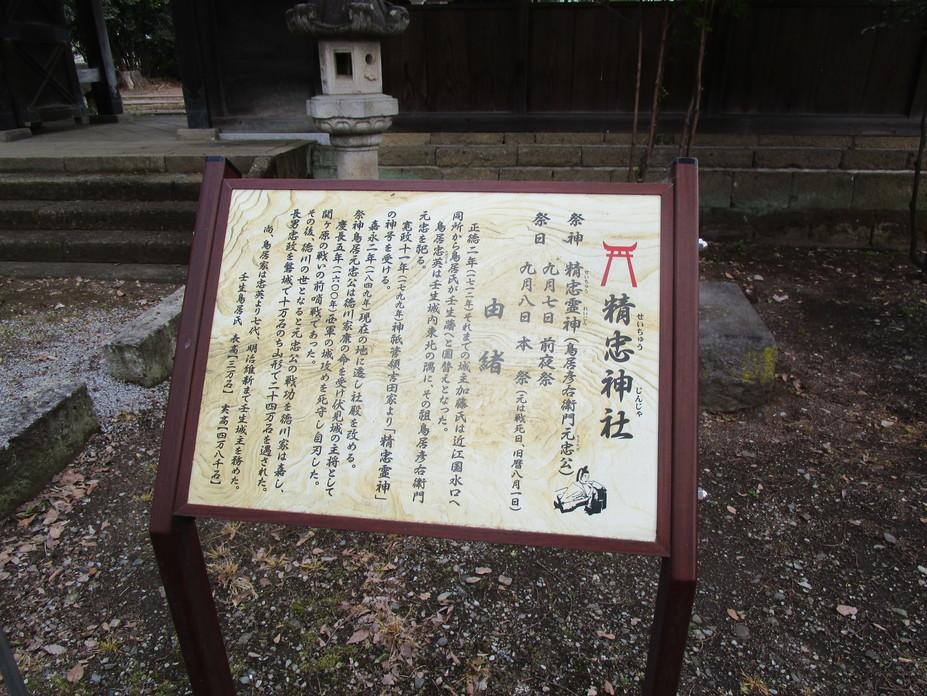 精忠神社
せいちゅう じんじゃ
祭神 精忠霊神(鳥居彦右衛門元忠公)
せいちゅう れいじん
祭日 九月七日 前夜祭
九月八日 本 祭(元は戦死日、旧暦八月一日)
由緒
正徳二年(一七一二)それまでの城主加藤氏は近江国水口へ
同所から鳥居氏が壬生藩へと国替えとなった。
鳥居忠英は壬生城内東北の隅に、その祖鳥居彦右衛門
元忠を祀る。
寛政十一年(一七九九)神祇管領吉田家より「精忠霊神」
の神号を受ける。
嘉永二年(一八四九)現在の地に遷し社殿を改める。
祭神鳥居元忠公は徳川家康の命を受け伏見城の主将として
慶長五年(一六〇〇年)西軍の城攻めを死守し自刃した。
関ヶ原の戦いの前哨戦であった。
その後、徳川の世となると元忠公の戦功を徳川家は嘉し、
長男忠政を磐城で十万石のち山形で二十四万石を遇された。
尚、鳥居家は忠英より七代、明治維新まで壬生城主を務めた。
壬生鳥居氏 表高【三万石】 実高【四万八千石】